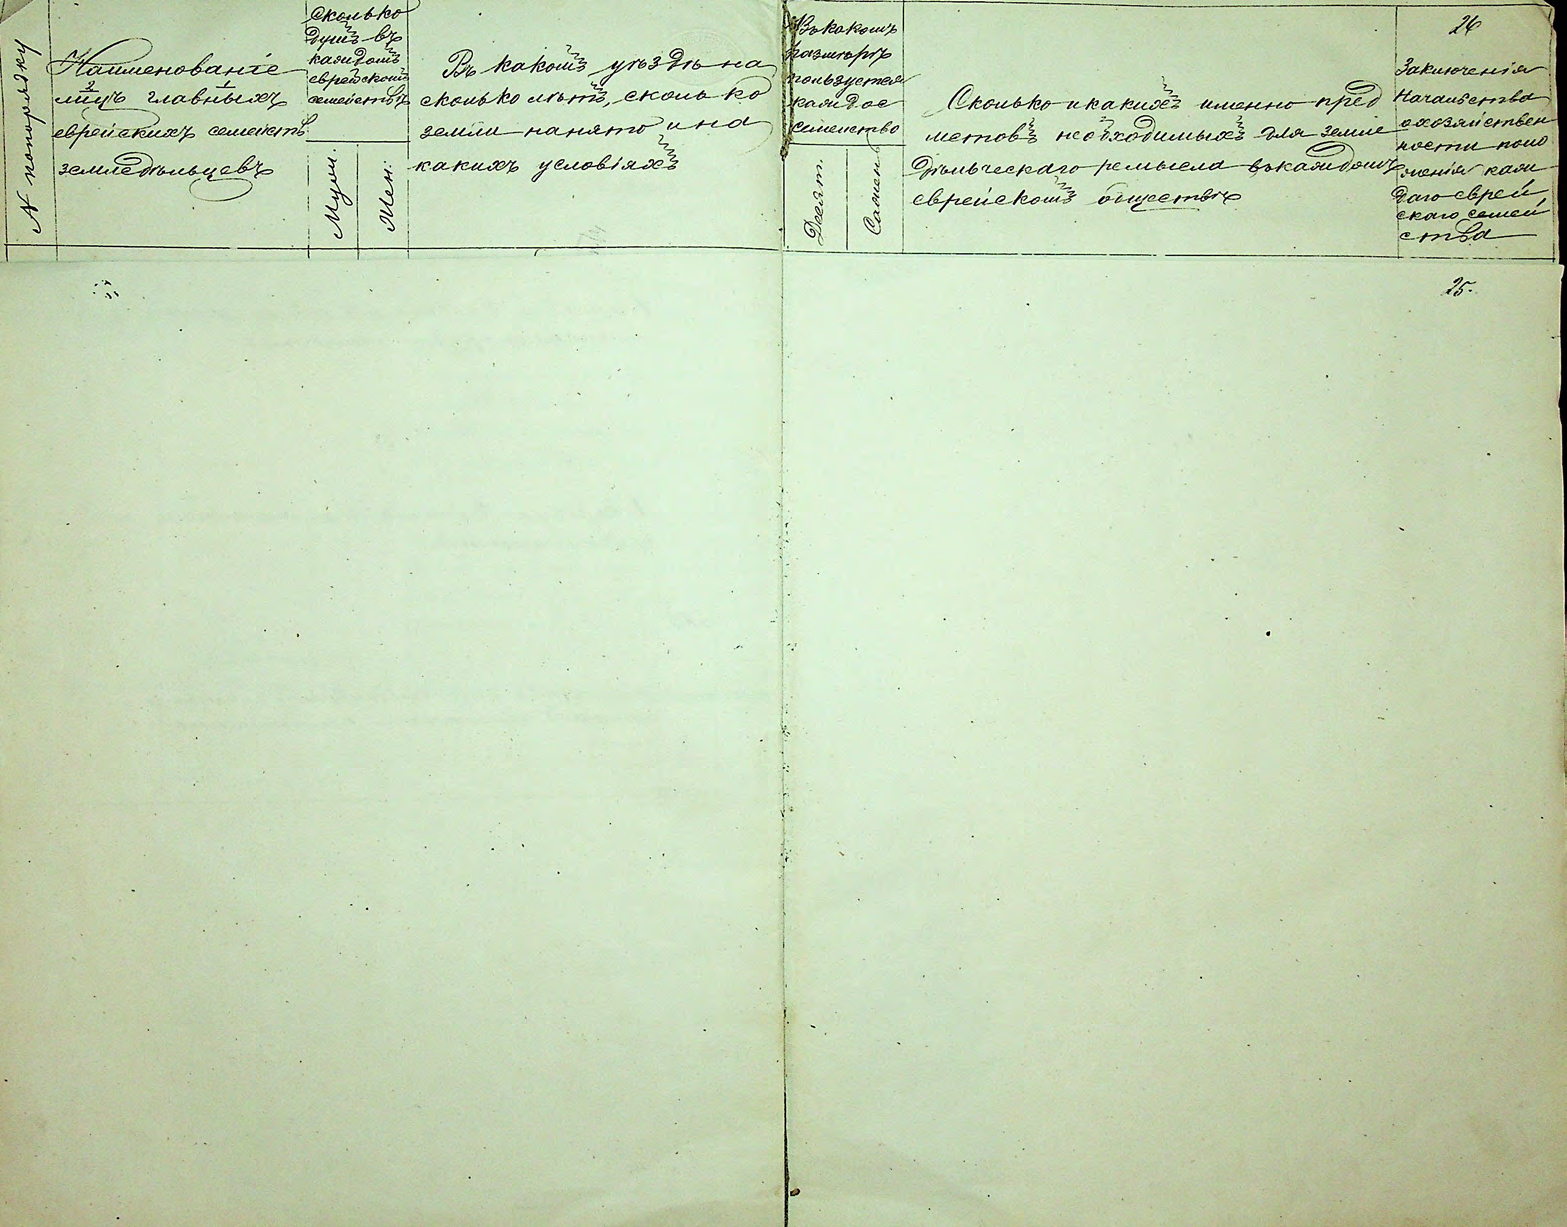 № попорядку
Наименованіе
лицъ главныхъ
еврейскихъ семействъ
земледѣльцевъ
Сколько
душъ въ
каждомъ
еврейскомъ
семействѣ
Муж.
Жен:
Въ какомъ уѣздѣ на
сколько лѣтъ, сколько
земли нанято и на
какихъ условіяхъ
Въ какомъ
размѣрѣ
пользуется
каждое
семейство
Десят.
Сажень
Сколько и какихъ именно пред
метовъ необходимыхъ для земле
дѣльческаго ремысла въ каждомъ
еврейскомъ обществѣ
26
Заключенія
Начальства
о хозяйствен
ности поло
женія каж
даго еврей
скаго семей
ства
25.